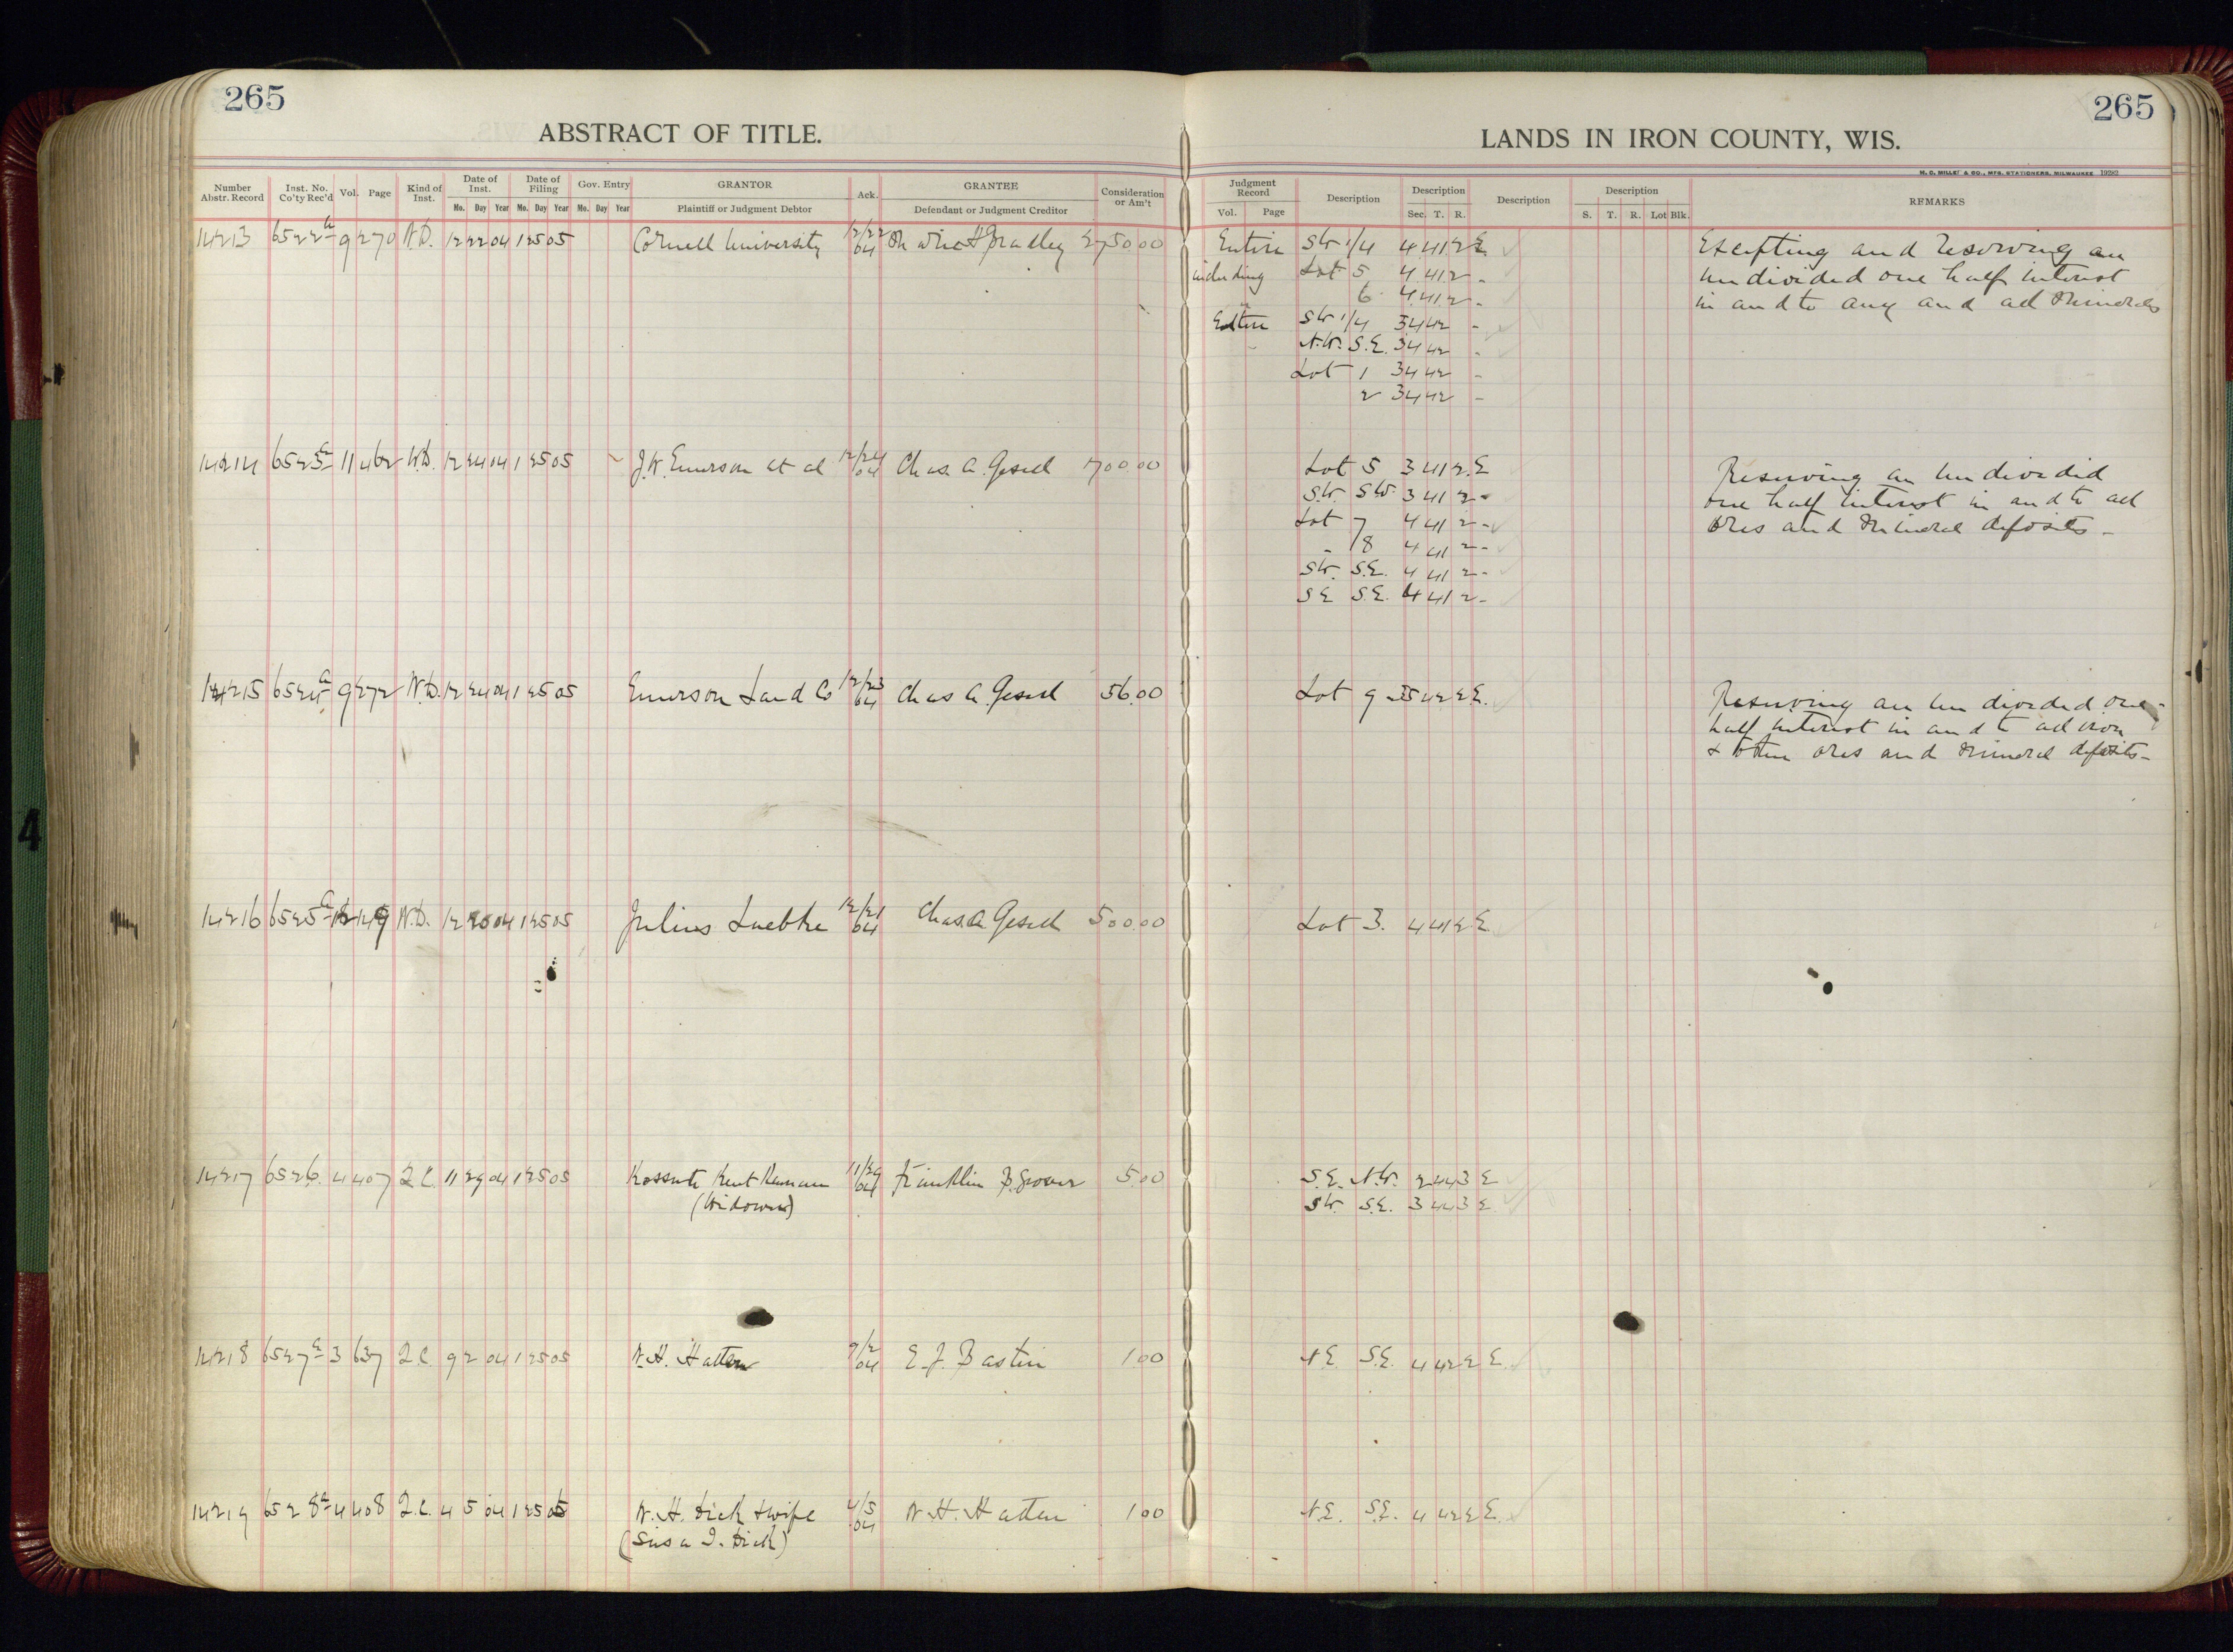 265
265
ABSTRACT OF TITLE.
LANDS IN IRON COUNTY, WIS.
M. C. MILLER & CO., MFG. STATIONERS, MILWAUKEE 19282
Number Abstr. Record Inst. No. Co'ty Rec'd Vol. Page Kind of Inst. Date of Inst. Mo. Day Year Date of Filing Mo. Day Year Gov. Entry Mo. Day Year GRANTOR Plaintiff or Judgment Debtor Ack. GRANTEE Defendant or Judgment Creditor Consideration or Am't
Judgment Record Vol. Page Description Description Sec. T. R. Description Description S. T. R. Lot Blk. REMARKS
14213 6522a 9 270 W.D. 12 22 04 1 25 05 Cornell University 12/22 04 Bradley 2750.00 Entire SW 1/4 4 41 2 E Excepting and reserving an
including Lot 5 4 41 2 - undivided one half interest
6 4 41 2 - in and to any and all minerals
Entire SW 1/4 34 42 -
N.W. S.E. 34 42 -
Lot 1 34 42 -
2 34 42 -
14214 6523a 11 462 W.D. 12 24 04 1 25 05 J.W. Emerson et al 12/24 04 Chas. A. Gesell 1700.00 Lot 5 3 41 2 E Reserving an undivided
S.W. S.W. 3 41 2 - one half interest in and to all
Lot 7 4 41 2 - ores and mineral deposits -
- 8 4 41 2 -
SW. S.E. 4 41 2 -
SE S.E. 4 41 2 -
14215 6524a 9 272 W.D. 12 24 04 1 25 05 Emerson Land Co 12/23 04 Chas A. Gesell 56.00 Lot 9 35 42 2 E. Reserving an undivided one-
half interest in and to all iron
& other ores and mineral deposits -
14216 6525a 149 W.D. 12 20 04 1 25 05 Julius Luebke 12/21 04 Chas. A. Gesell 500.00 Lot 3. 4 41 2 E
14217 6526. 4 407 Q.C. 11 29 04 1 25 05 Kossuth Kent 11/29 04 Franklin 5.00 S.E. N.W. 2 44 3 E
(Widower) SW. S.E. 3 44 3 E
14218 6527a 3 637 Q.C. 9 2 04 1 25 05 W.H. Hatten 9/2 04 E.J. Bastin 1.00 N.E. S.E. 4 42 2 E
14219 6528a 4 408 Q.C. 4 5 04 1 25 05 W.H. Dick & wife 4/5 04 W.H. Hatten 1.00 N.E. S.E. 4 42 2 E
(Susa I. Dick)
4